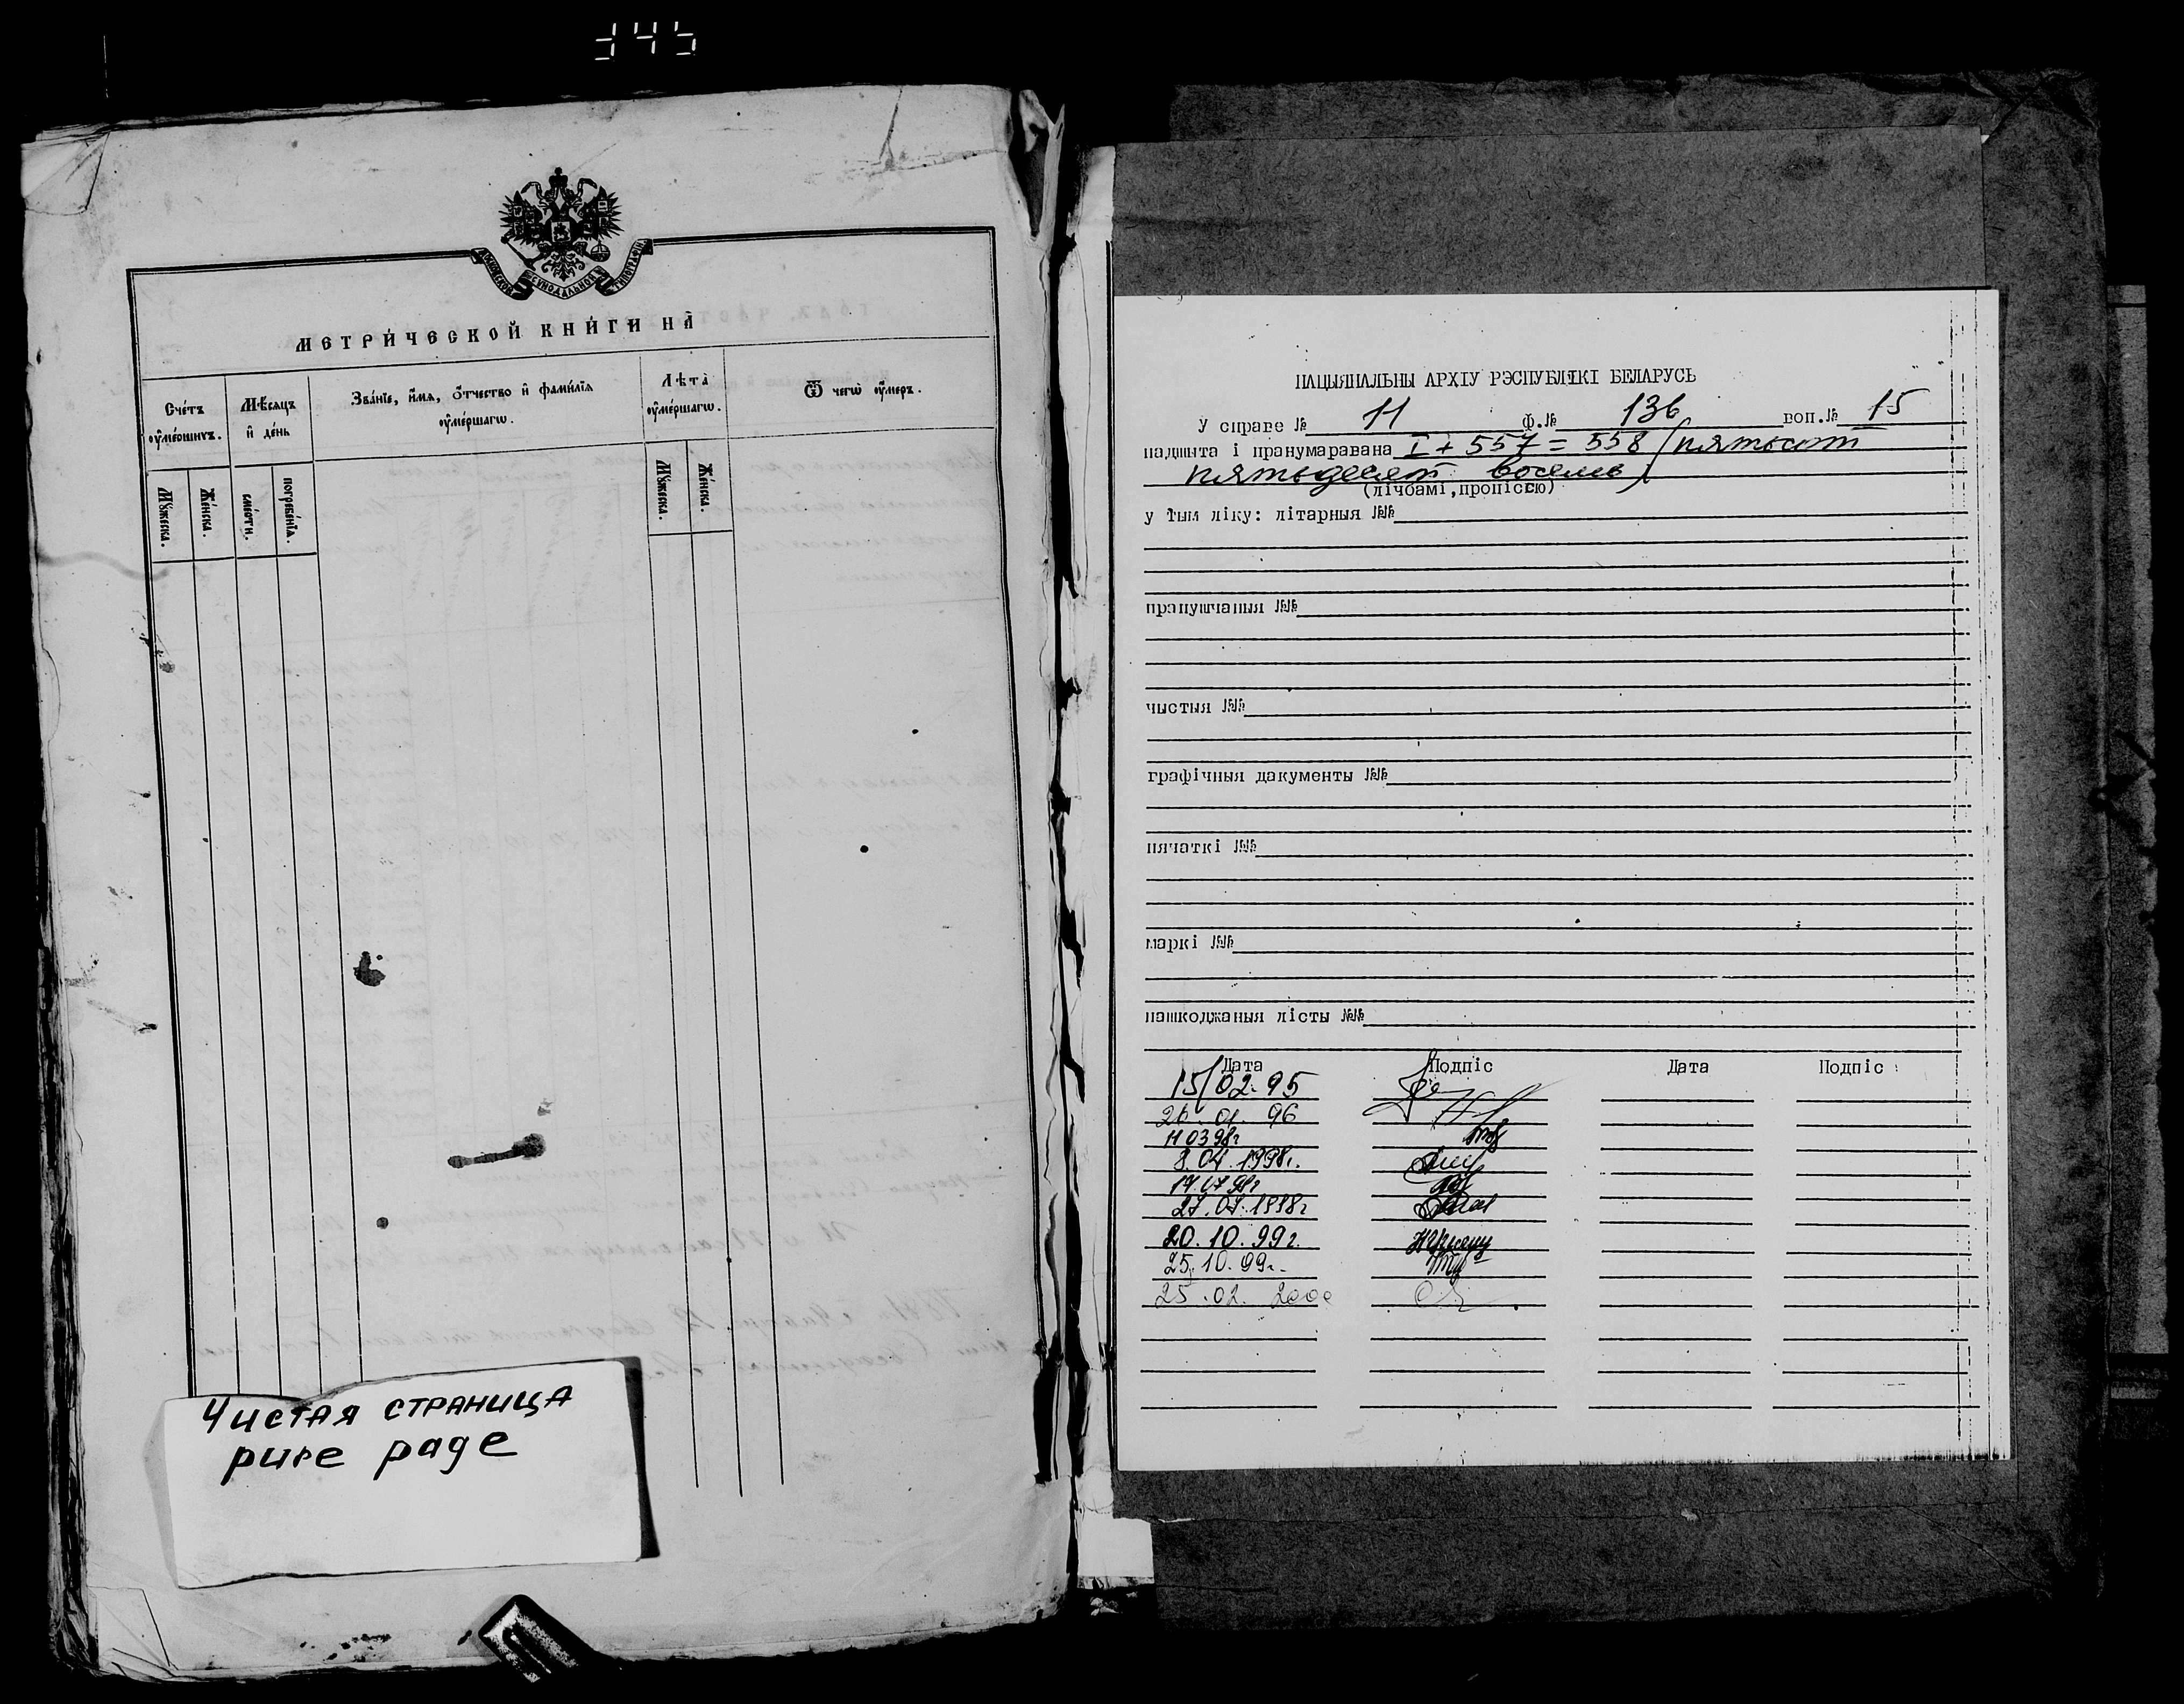 345
МОСКОВСКОЙ СѴНОДАЛЬНОЙ ТИПОГРАФІИ
МЕТРИ́ЧЕСКОЙ КНИ́ГИ НА̀
Счетъ ᲂу҆ме́ршихъ.
Мѣсѧцъ и҆ де́нь
Зва́нїе, и҆́мѧ, ѻ҆́тчество и҆ фами́лїѧ ᲂу҆ме́ршагѡ.
Лѣта̀ ᲂу҆ме́ршагѡ.
Ѿ чегѡ̀ ᲂу҆́меръ.
Мꙋ́жеска.
Же́нска.
сме́рти.
погребе́нїѧ.
Мꙋ́жеска.
Же́нска.
Чистая страница
pure page
НАЦЫЯНАЛЬНЫ АРХІУ РЭСПУБЛІКІ БЕЛАРУСЬ
У справе № 11 ф.№ 136 воп.№ 15
падшыта і пранумаравана I + 557 = 558 (пятьсот
пятьдесят восемь)
(лічбамі,пропіссю)
у тым ліку: літарныя №№
прапушчаныя №№
чыстыя №№
графічныя дакументы №№
пячаткі №№
маркі №№
пашкоджаныя лісты №№
Дата Подпіс Дата Подпіс
15/02.95
26.01.96
11 03 98г
8.04.1998г.
17.07 98г
27.07.1998г
20.10.99г.
25.10.99г.
25.02.2000